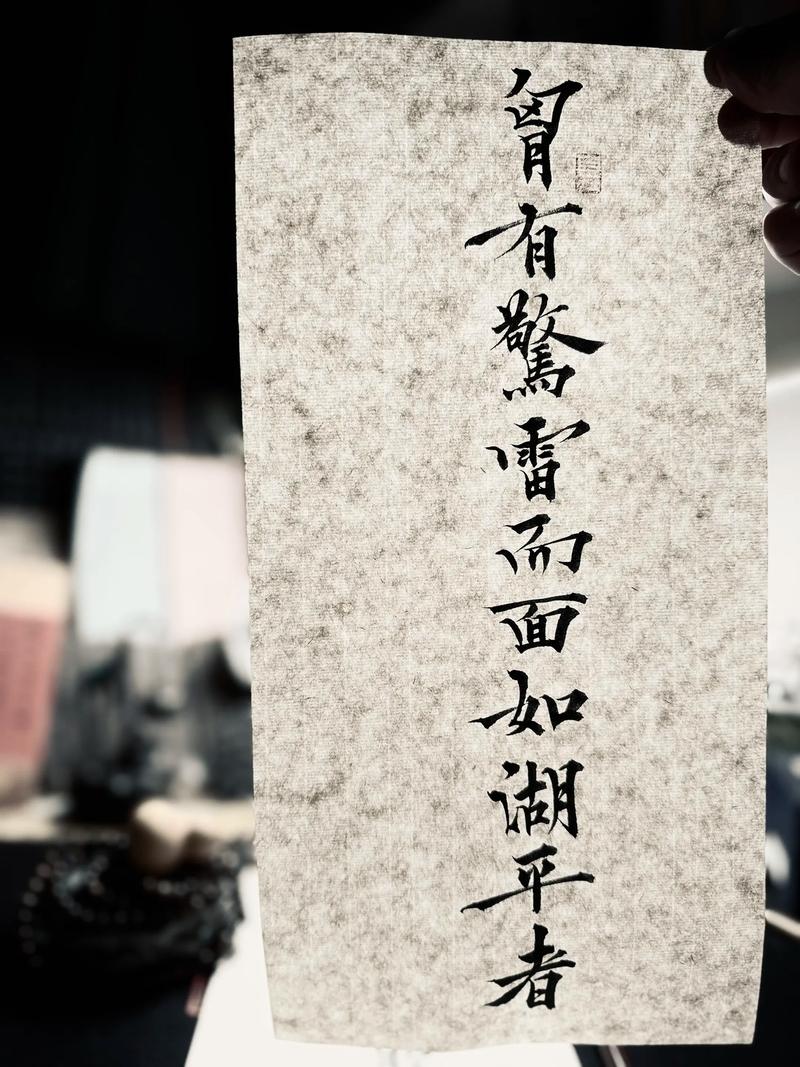 胷有驚雷而面如湖平者